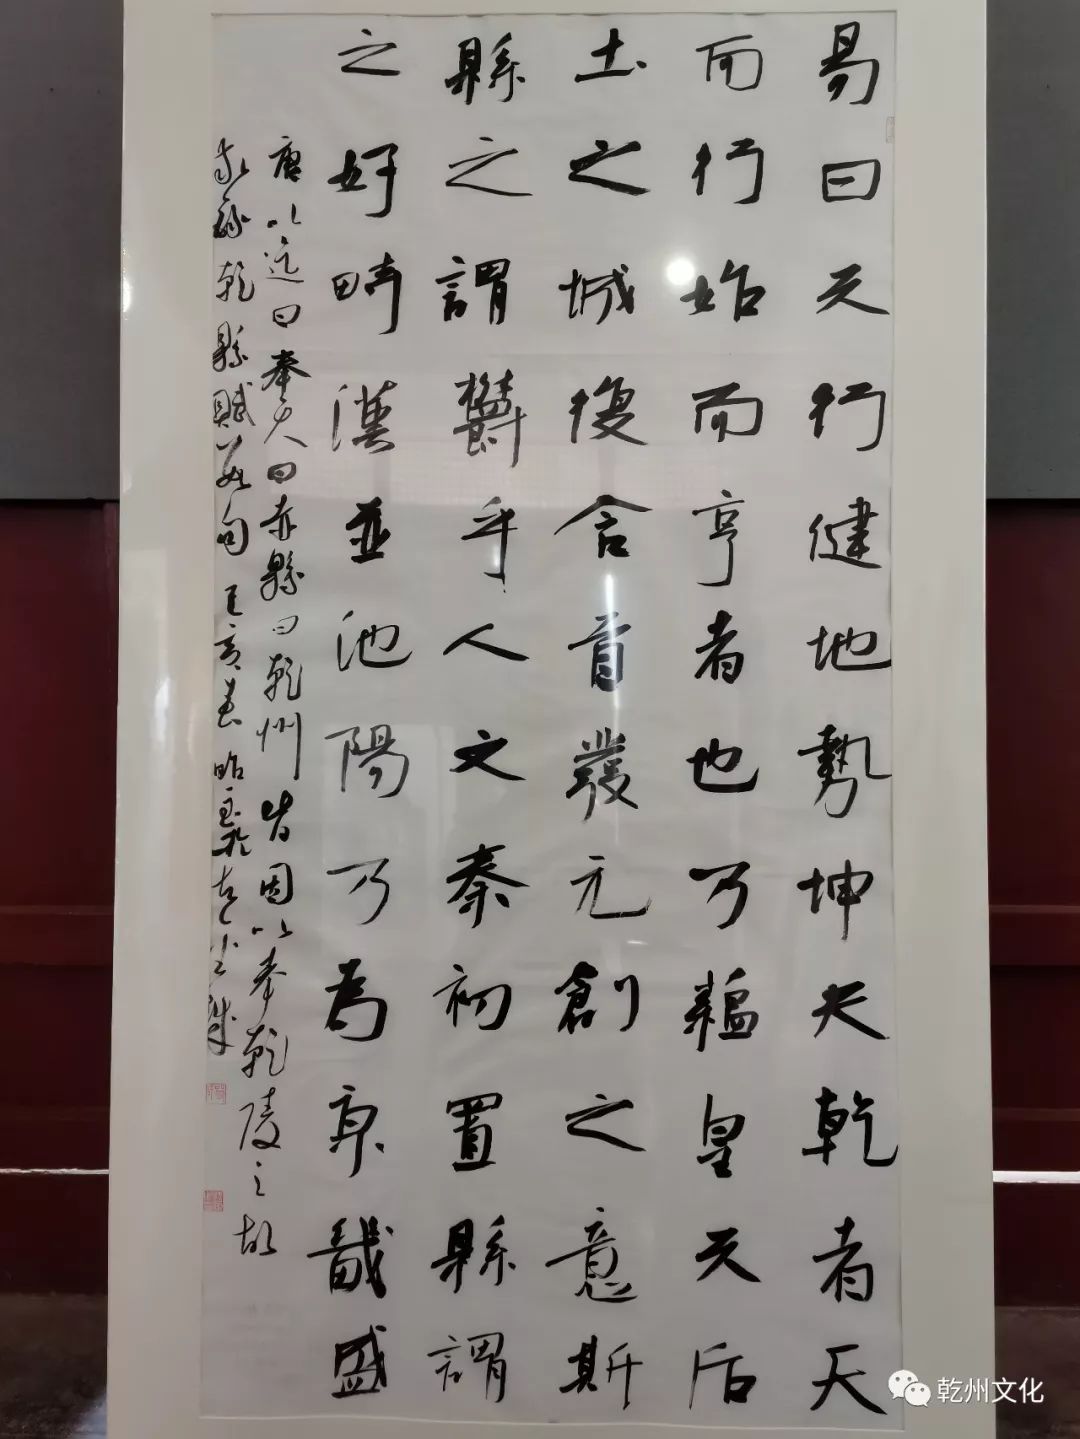 易曰天行健地勢坤夫乾者天
而行始而亨者也乃糅皇天后
土之城復含首發元創之意斯
縣之謂欎乎人文秦初置縣謂
之好畤漢並池陽乃為京畿盛
唐以迄曰奉天曰赤縣曰乾州皆因以奉乾陵之故
敬錄乾縣賦數句 春昭於古
乾州文化